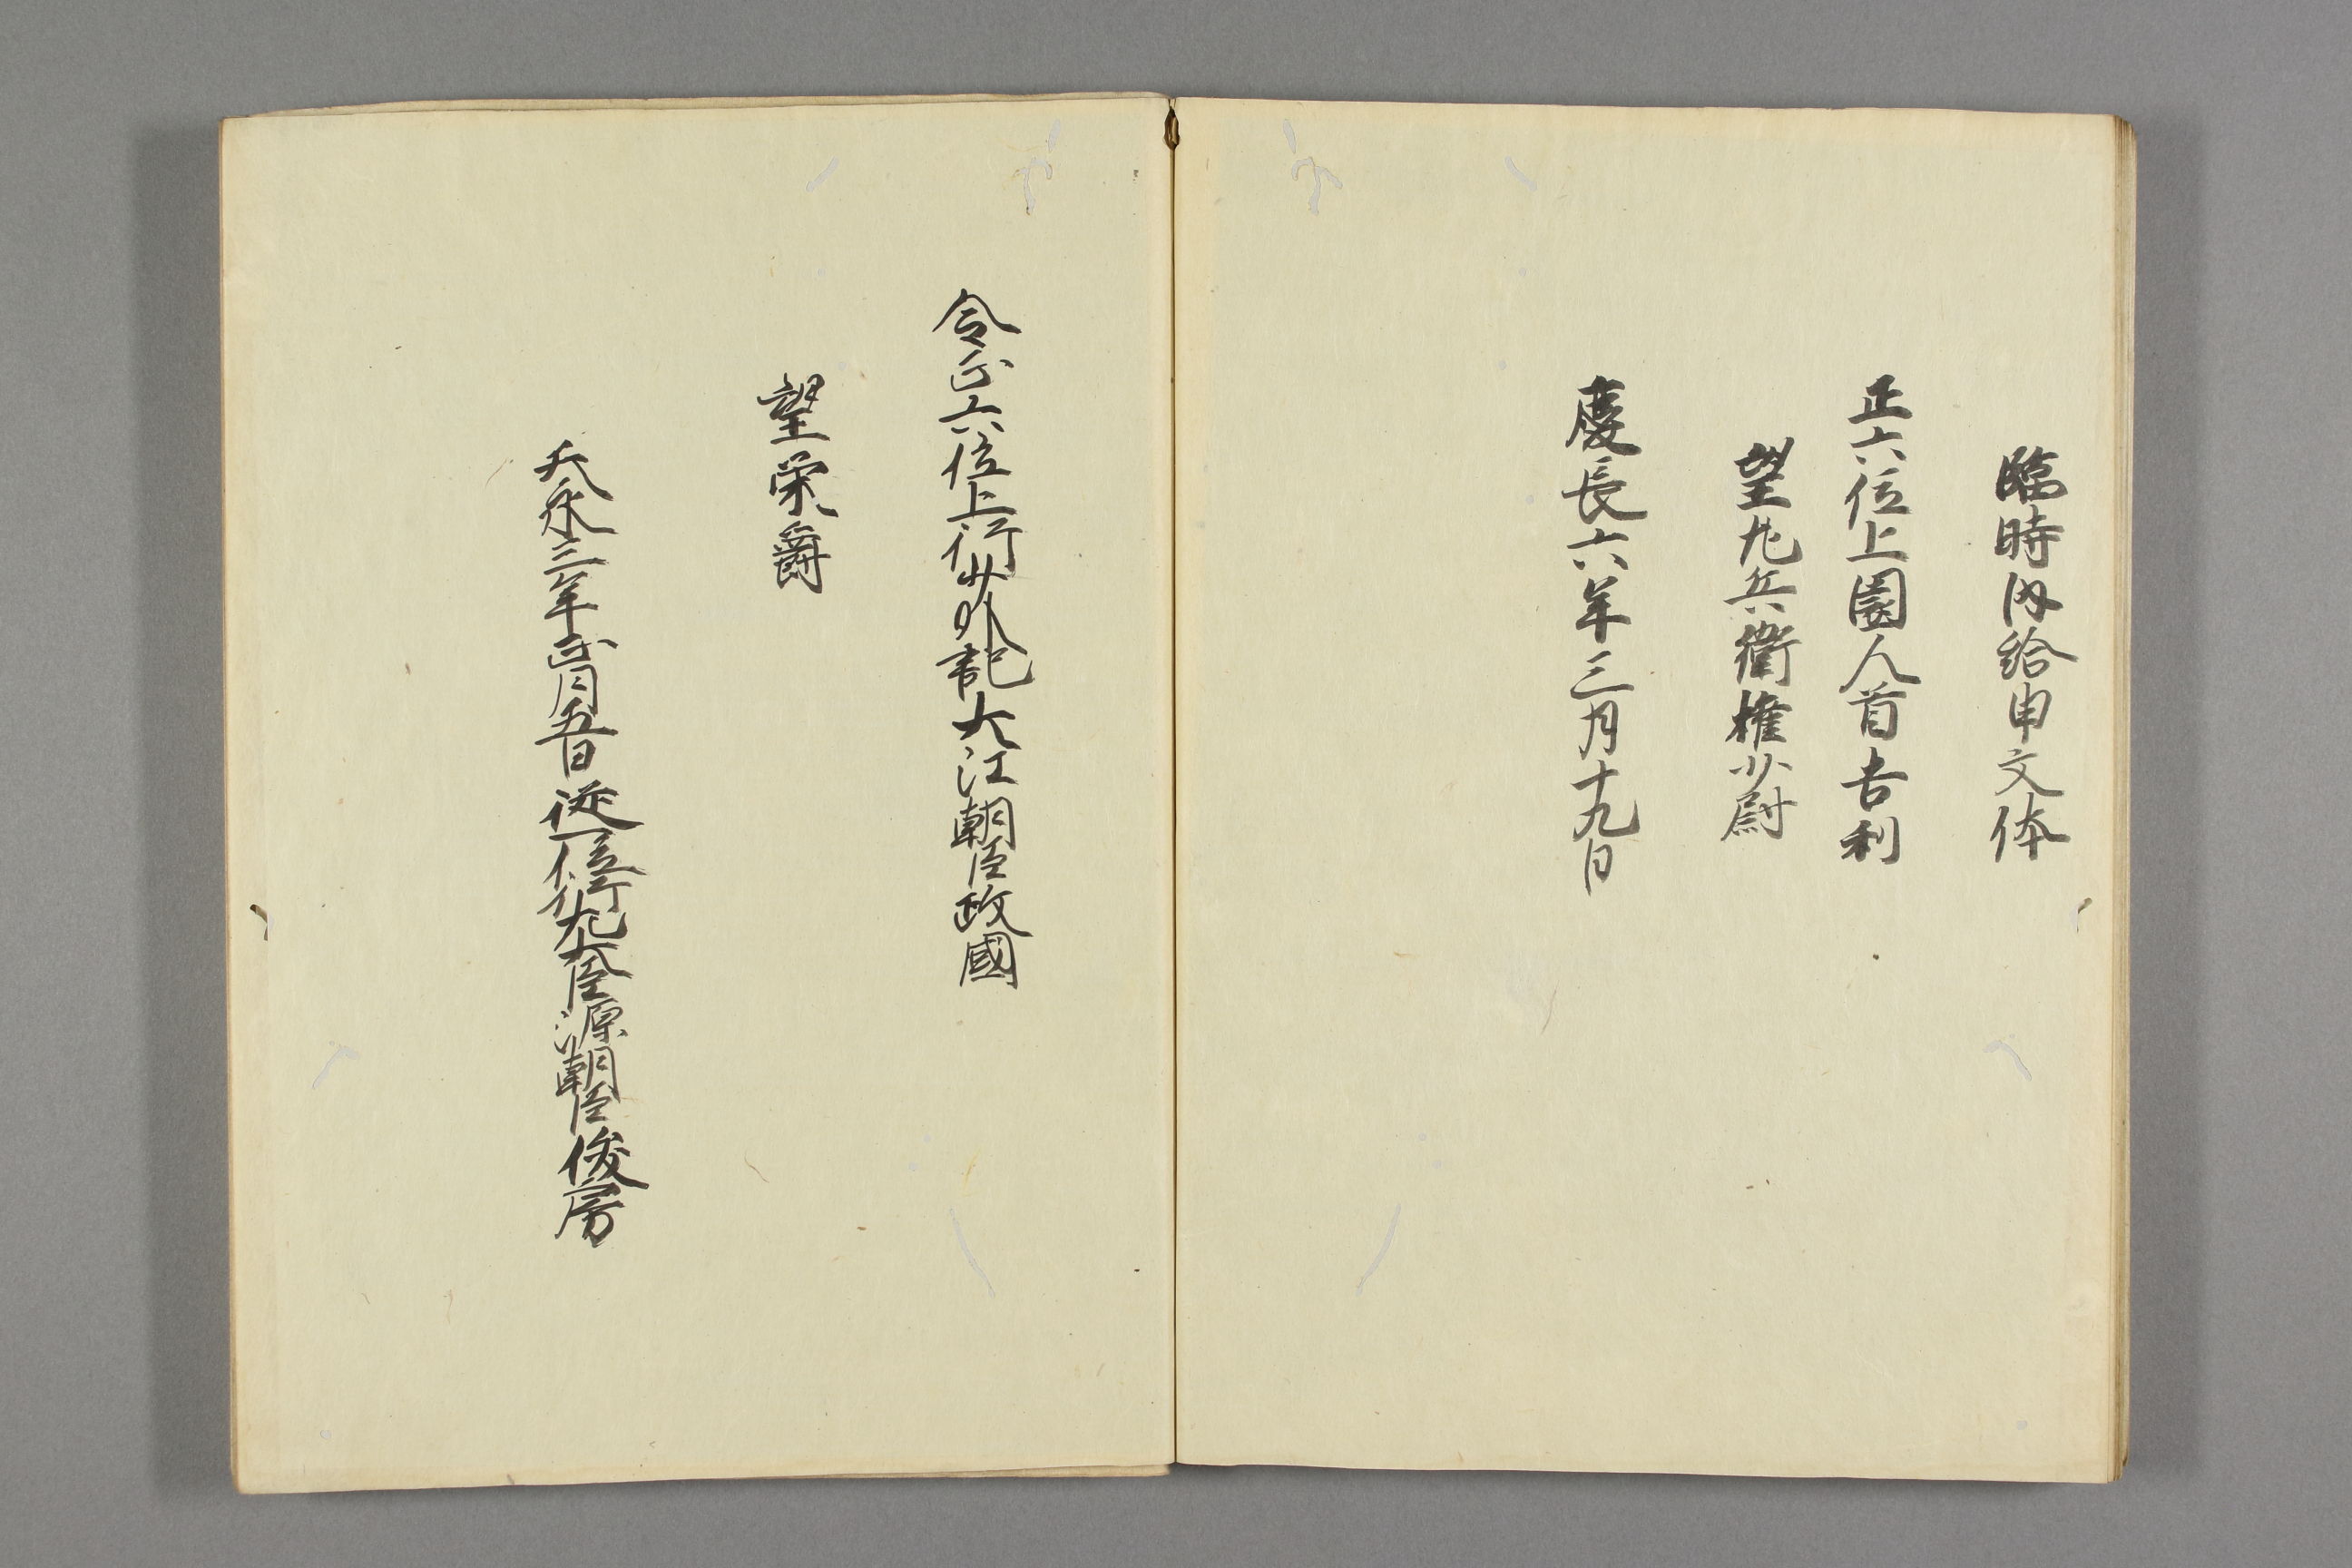 臨時内給申文体
正六位上園人首吉利
望左兵衛権少尉
慶長六年三月十九日
令正六位上行少外記大江朝臣政國
望栄爵
天永二年正月五日従一位行左大臣源朝臣俊房